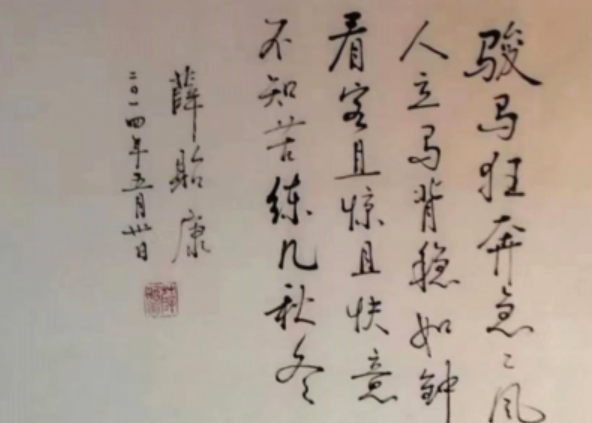 骏马狂奔急急风
人立马背稳如钟
看客且惊且快意
不知苦练几秋冬
薛贻康
二〇一四年五月卅日